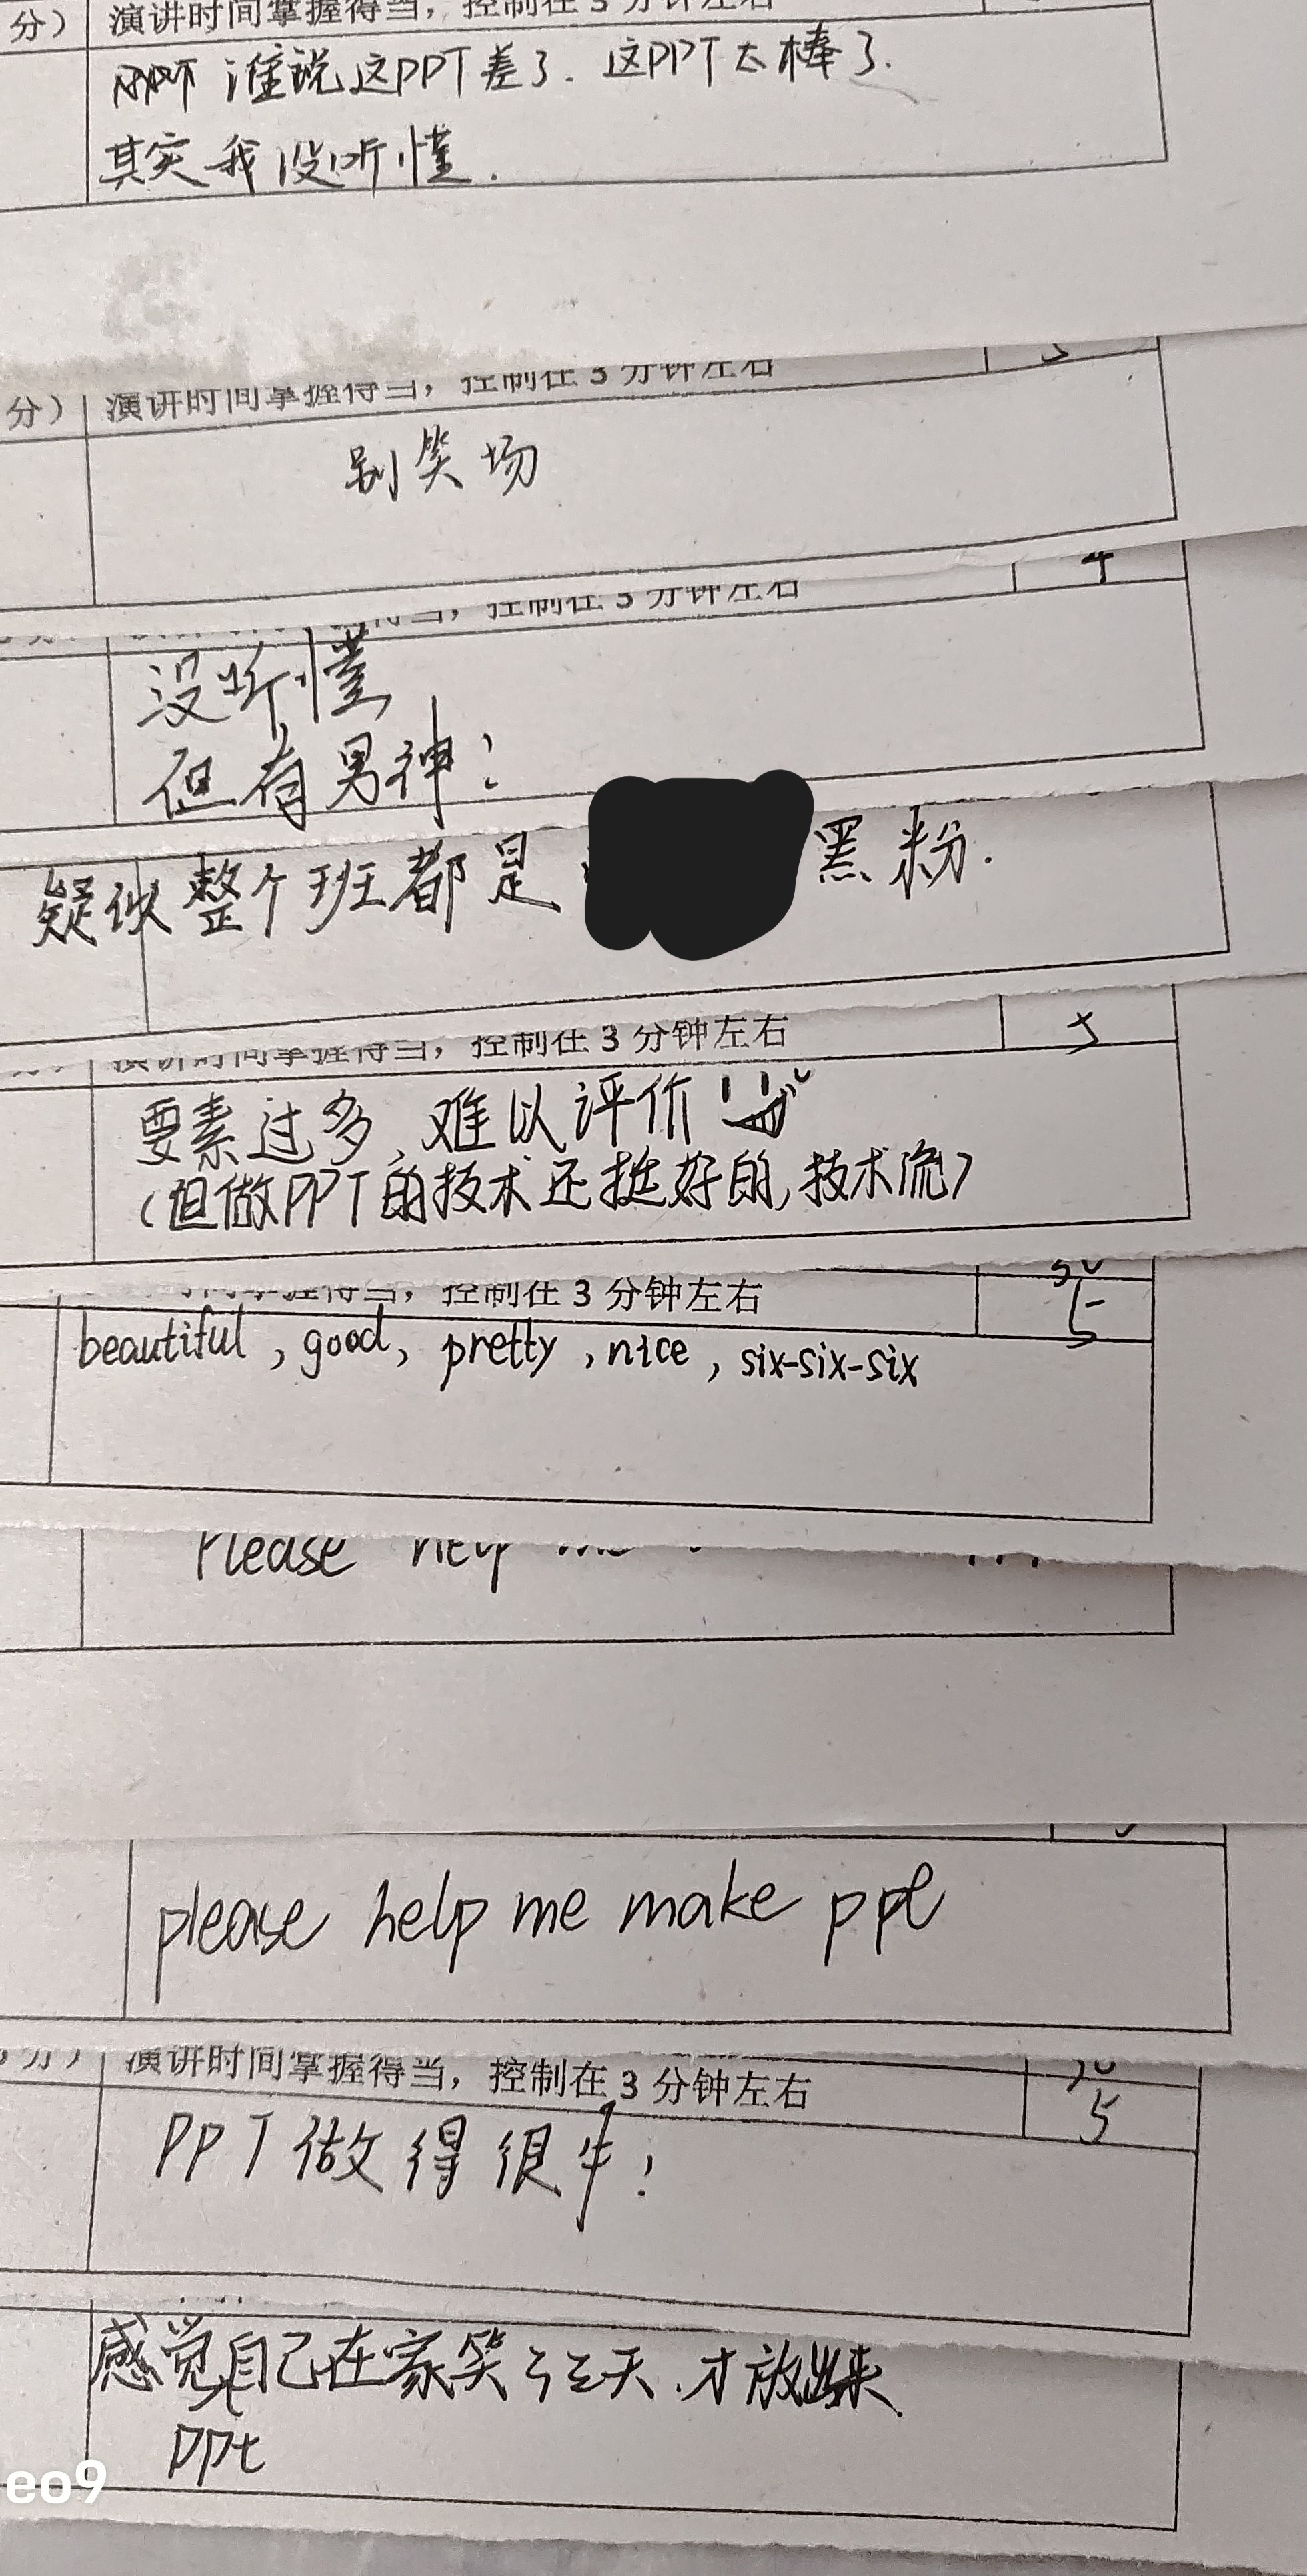 分） 演讲时间掌握得当，控制在3分钟左右
谁说这PPT差了. 这PPT太棒了.
其实我没听懂.
分） 演讲时间掌握得当，控制在3分钟左右
别笑场
控制在3分钟左右 4
没听懂
但有男神！
疑似整个班都是 黑粉.
演讲时间掌握得当，控制在3分钟左右 5
要素过多，难以评价
（但做PPT的技术还挺好的，技术流）
控制在3分钟左右 5
beautiful , good, pretty , nice , six-six-six
Please help
please help me make ppt
分） 演讲时间掌握得当，控制在3分钟左右 5
PPT做得很牛！
感觉自己在家笑了三天.才放出来.
ppt
eo9